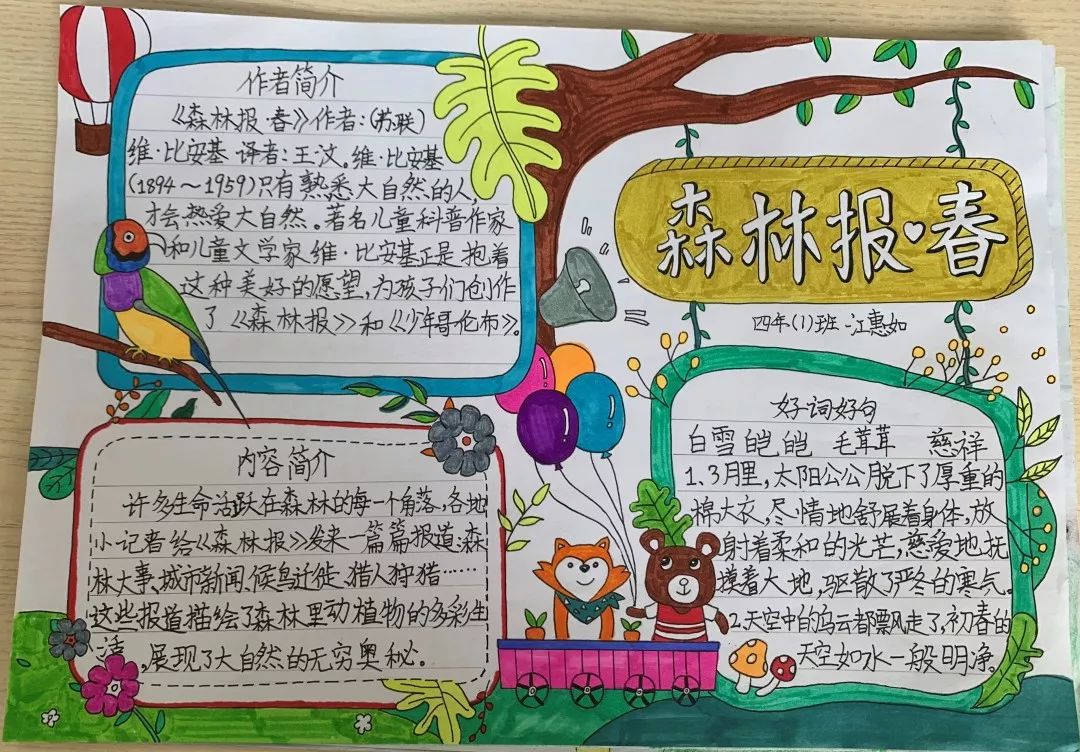 作者简介
《森林报·春》作者:(苏联)
维·比安基 译者:王汶。维·比安基
(1894～1959)只有熟悉大自然的人,
才会热爱大自然。著名儿童科普作家
和儿童文学家维·比安基正是抱着
这种美好的愿望,为孩子们创作
了《森林报》和《少年哥伦布》。
森林报·春
四年(1)班 江惠如
内容简介
许多生命活跃在森林的每一个角落,各地
小记者给《森林报》发来一篇篇报道:森
林大事、城市新闻、候鸟迁徙、猎人狩猎……
这些报道描绘了森林里动植物的多彩生
活,展现了大自然的无穷奥秘。
好词好句
白雪皑皑 毛茸茸 慈祥
1.3月里,太阳公公脱下了厚重的
棉大衣,尽情地舒展着身体,放
射着柔和的光芒,慈爱地抚
摸着大地,驱散了严冬的寒气。
2.天空中的乌云都飘走了,初春的
天空如水一般明净。